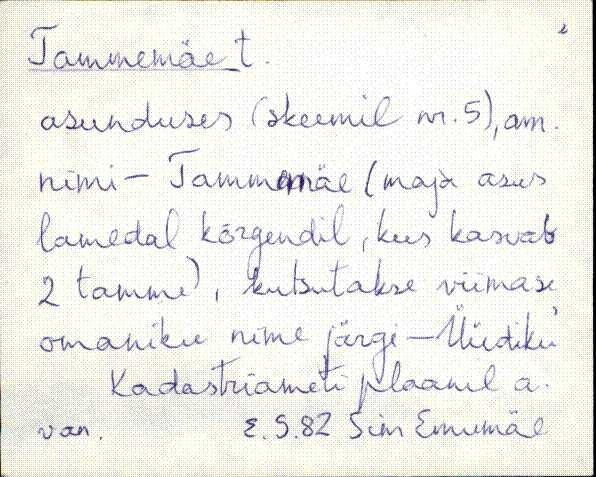 Tammemäe t.
asunduses (skeemil nr. 5), am.
nimi – Tammemäe (maja asus
lamedal kõrgendil, kus kasvab
2 tamme), kutsutakse viimase
omaniku nime järgi –
Kadastriameti plaanil a.
van. E.S.82 Sim Emumäe